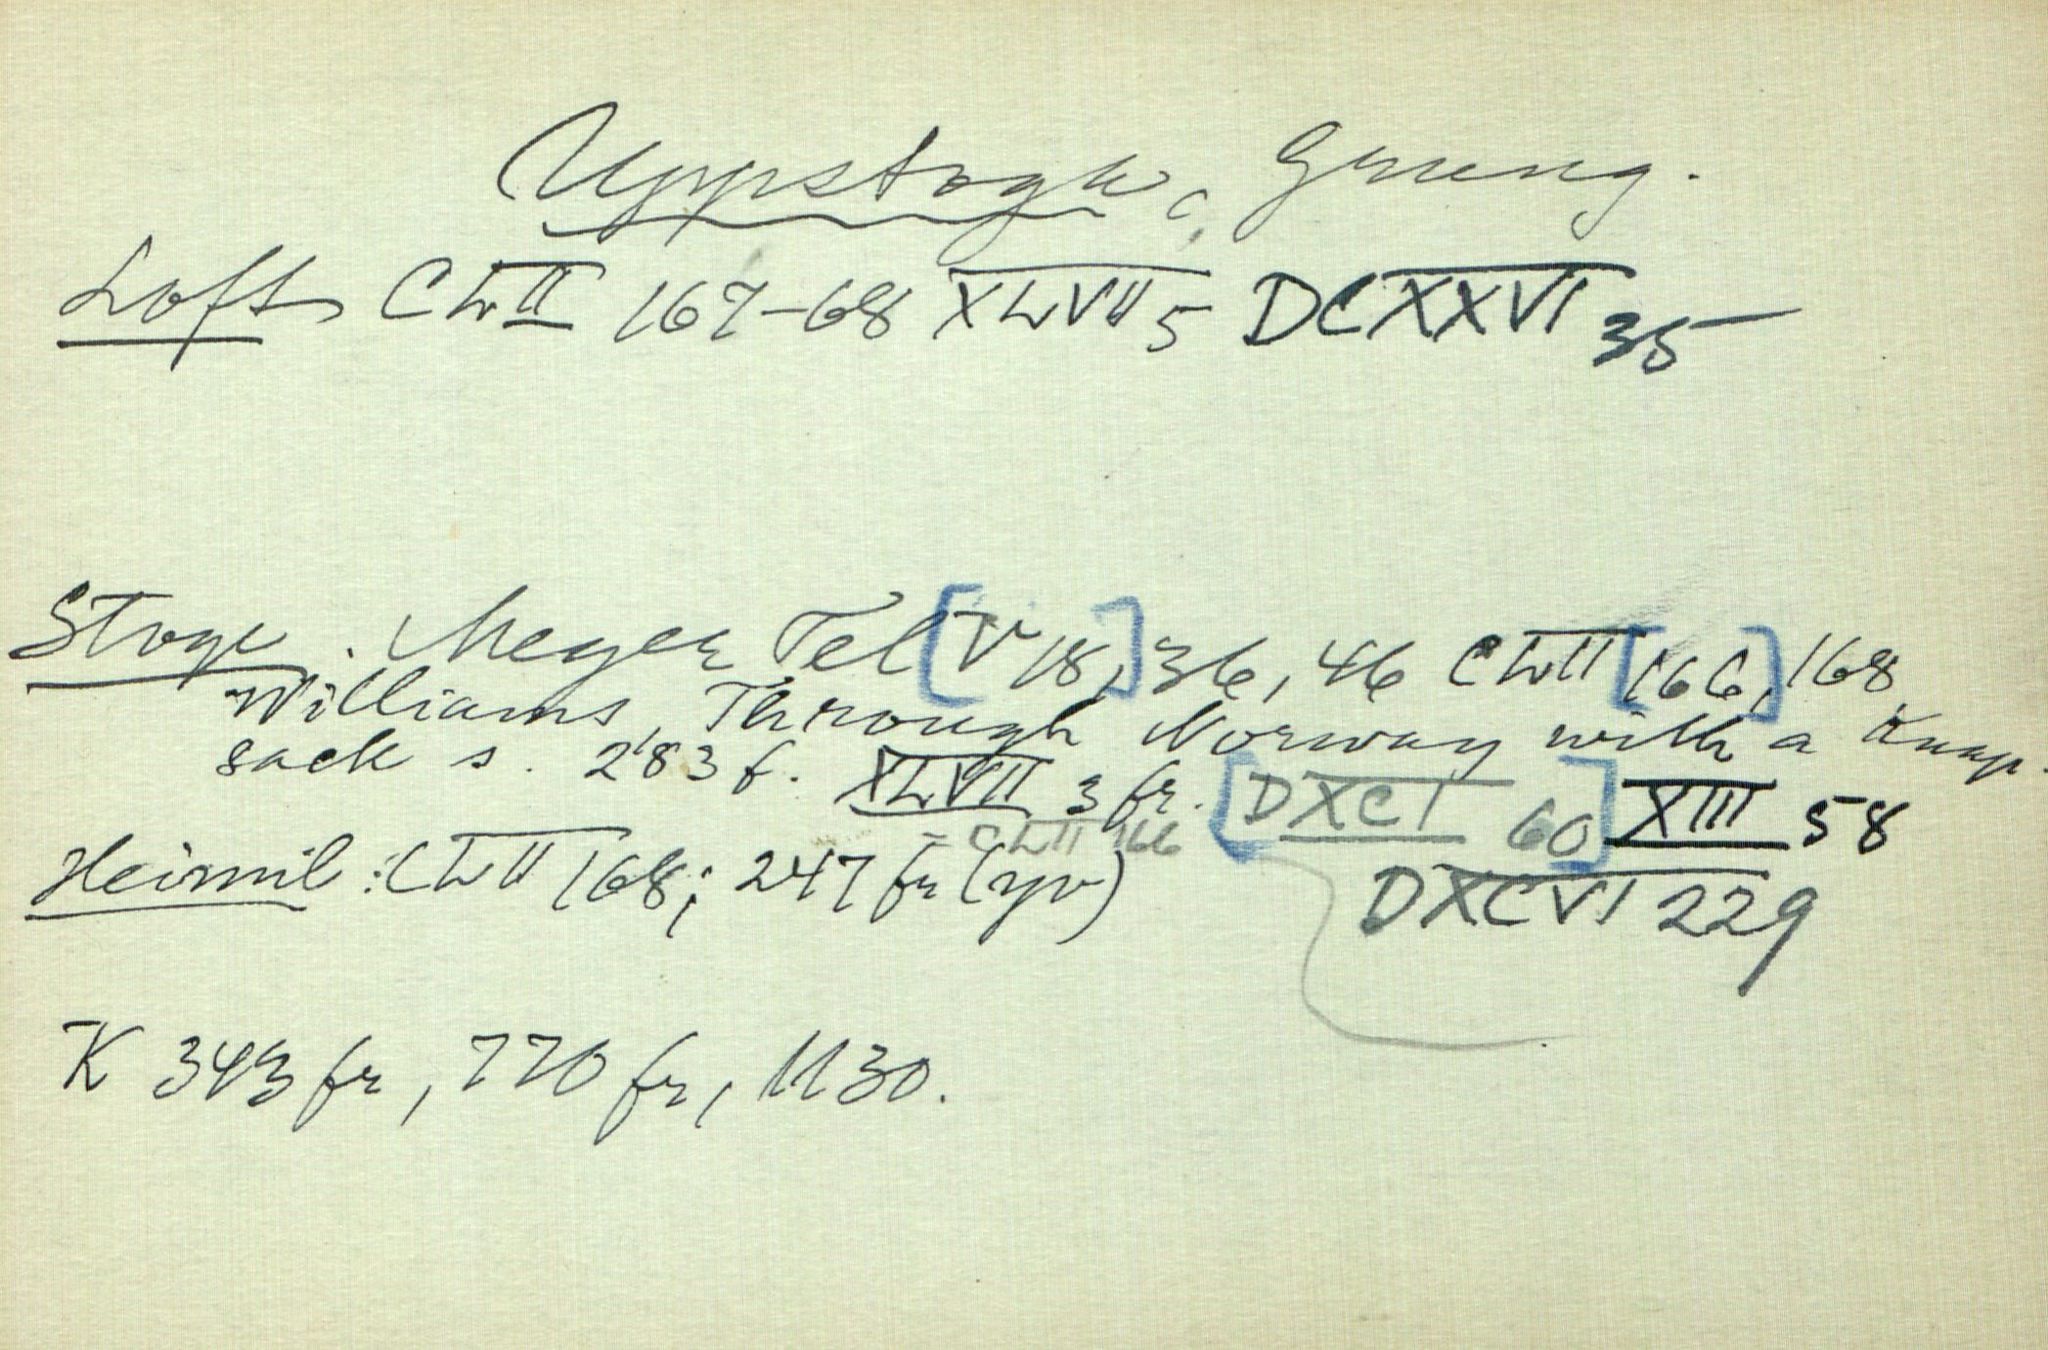 Uppstogu, Grung.
Loft CLII 167-68 XLVII 5 DCXXVI 35
Stoge. Meyer Tel [V 18,] 36, 46 CLII [166,] 168
Williams, Through Norway with a Knap-
sack s. 283 f. XLVII 3 fr. [DXCI 60] XIII 58
= CLII 166
Heimil: CLII 168; 247 fr (yv) DXCVI 229
K 343 fr, 770 fr, 1130.